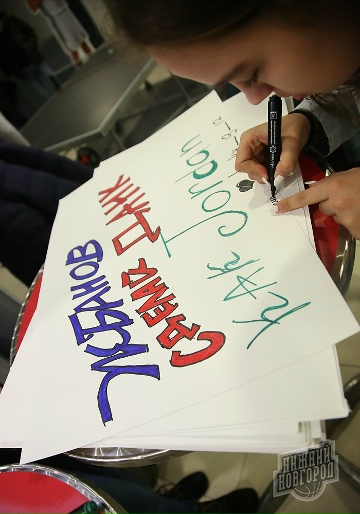 ЖБАНОВ
СДЕЛАЙ ДАНК
КАК Jordan
НИЖНИЙ
НОВГОРОД